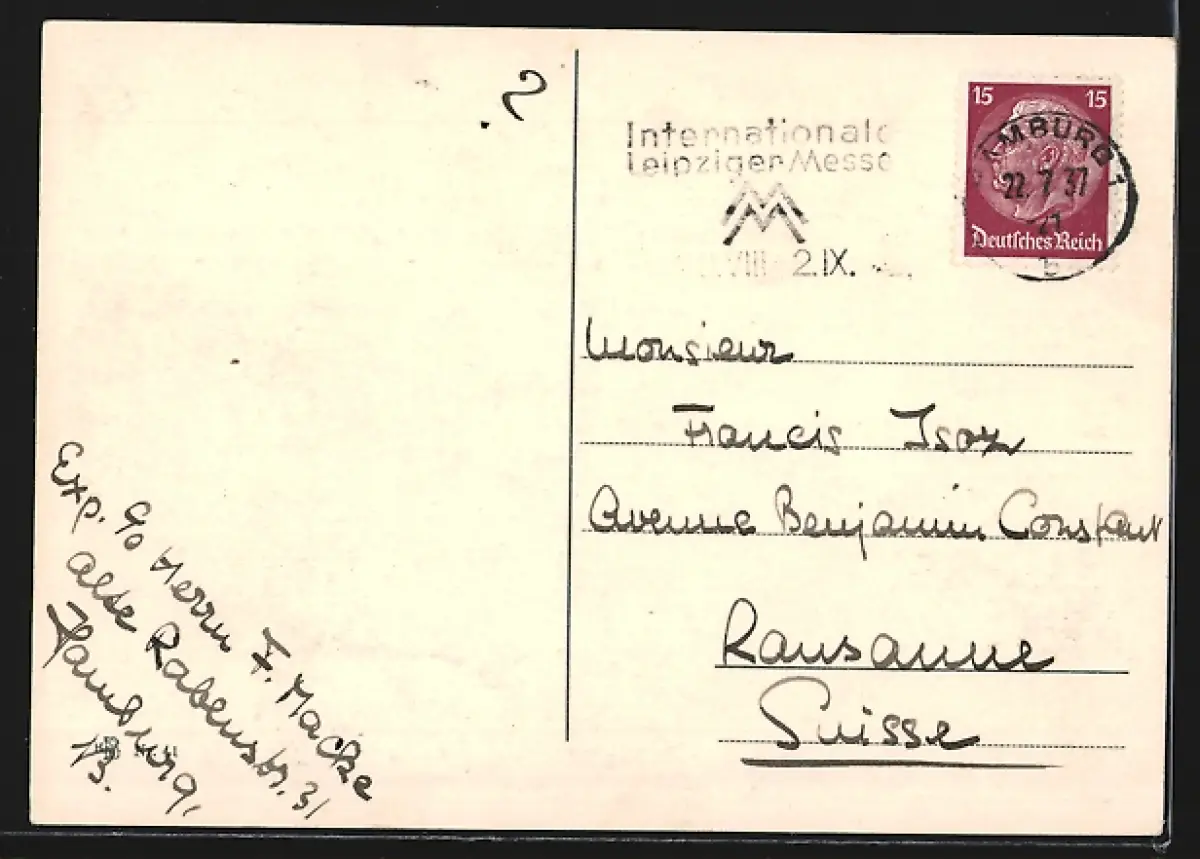 2.
Internationale
Leipziger Messe
VIII 2.IX.
15 15
HAMBURG 1
22.7.37
21
b
Deutsches Reich
Monsieur
Francis Isoz
Avenue Benjamin Constant
Lausanne
Suisse
Exp. c/o Herrn F. Macke
alte Rabenstr. 31
Hamburg,
13.